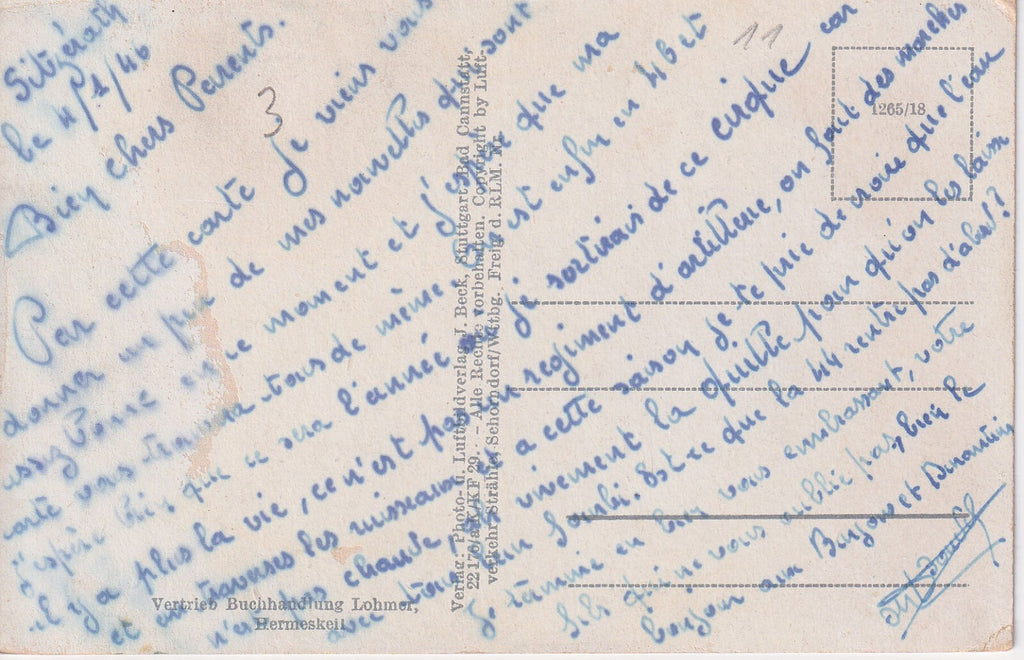 Sitzerath
le 4/1/46
11
3
Bien chers Parents.
Par cette carte je viens vous
donner un peu de mes nouvelles qui sont
assez bonne en ce moment et j'espère que ma
carte vous trouvera tous de même. On est enfin en 46 et
j'espère bien que ce sera l'année où je sortirais de ce cirque car
il y a plus la vie, ce n'est pas un régiment d'artillerie, on fait des marches
et on traverses les ruisseaux à cette saison je te prie de croire que l'eau
n'est pas chaude vivement la quille pour qu'on les laisse
avec tout leur fourbi. Est-ce que la 44 rentre pas d'abord?
Je termine en bien vous embrassant, votre
fils qui ne vous oublie pas, bien le
bonjour aux Binjou et
1265/18
Verlag: Photo- u. Luftbildverlag J. Beck, Stuttgart-Bad Cannstatt,
22170/a K/KF 29. - Alle Rechte vorbehalten. Copyright by Luft-
verkehr Strähle Schorndorf/Wttbg. Freig. d. RLM. Nr.
Vertrieb Buchhandlung Lohmer,
Hermeskeil